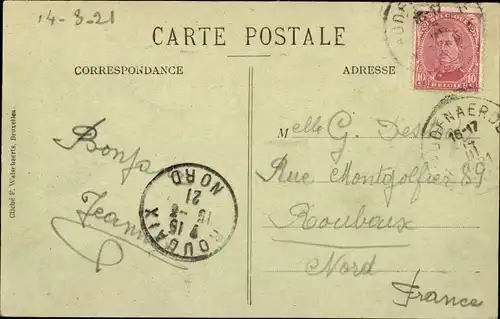 14-3-21
CARTE POSTALE
CORRESPONDANCE
ADRESSE
BELGIQUE
10 BELGIË 10
AUDENAERDE
16-17
Melle G. Des
Rue Montgolfier 89
Roubaix
Nord
France
Bonjo
Jeanne
ROUBAIX
7 15
15 -3
21
NORD
Cliché F. Walschaerts, Bruxelles.